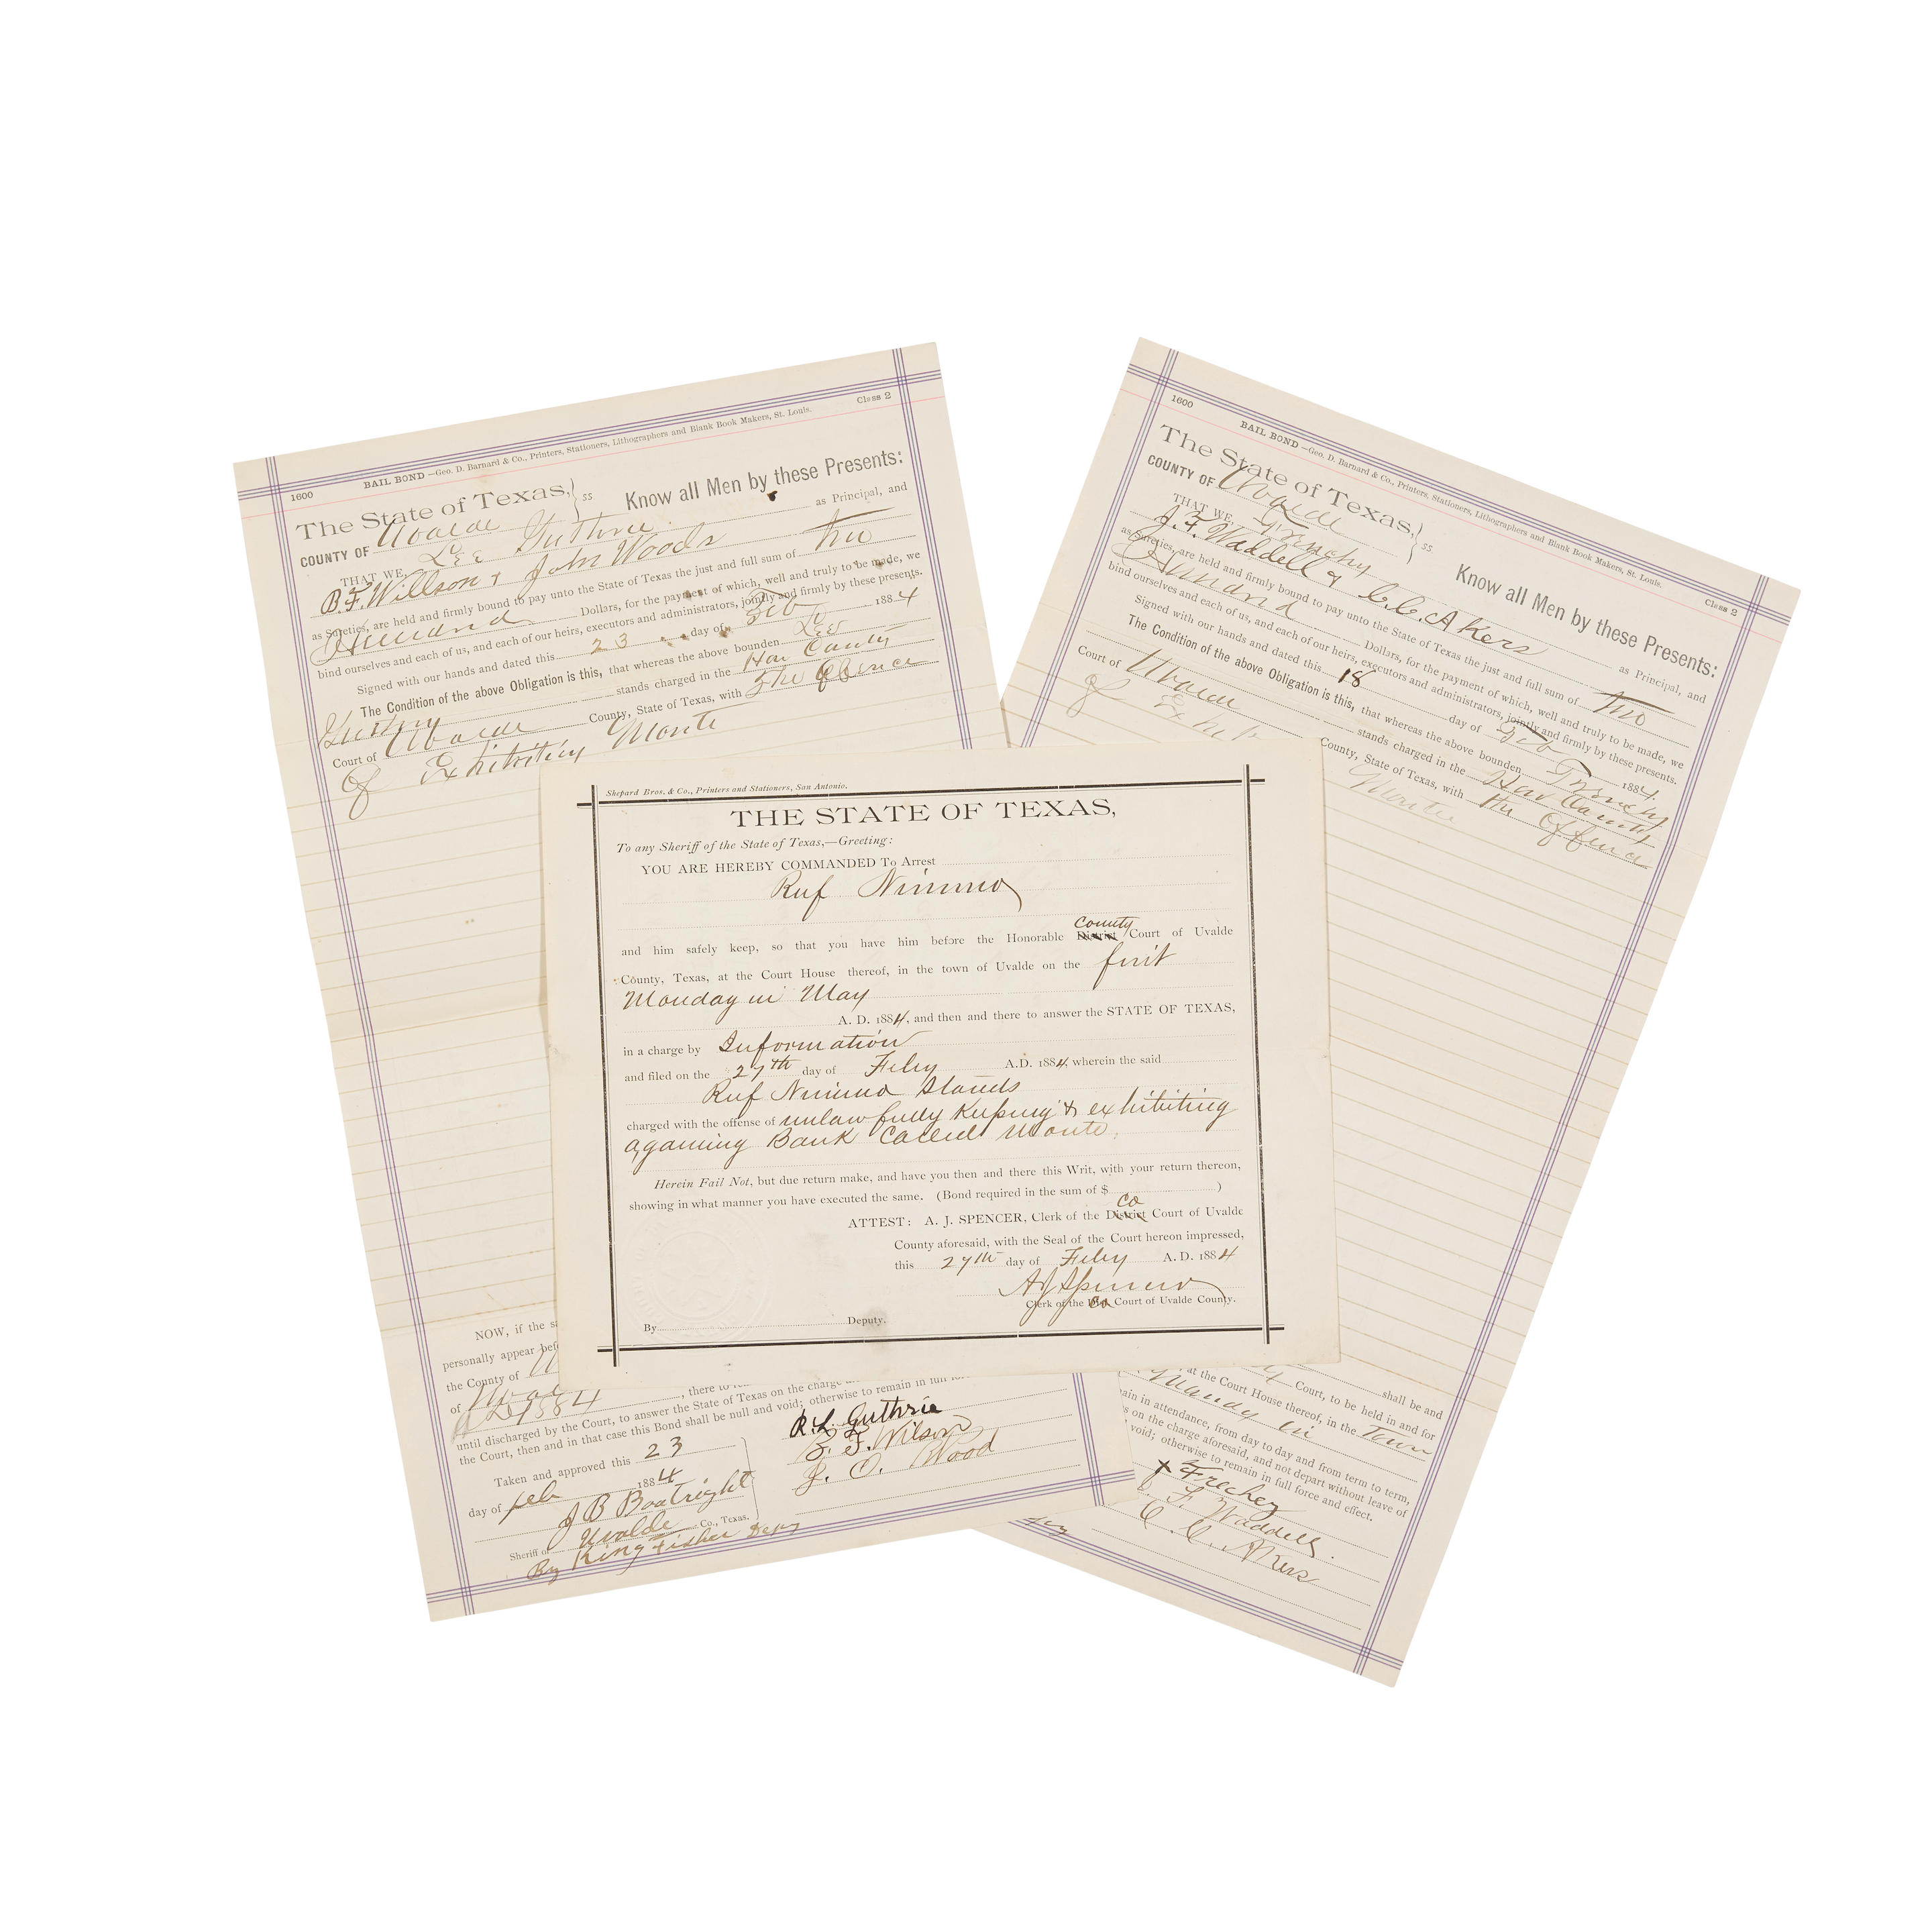 1600 BAIL BOND —Geo. D. Barnard & Co., Printers, Stationers, Lithographers and Blank Book Makers, St. Louis. Class 2
The State of Texas, } ss Know all Men by these Presents:
COUNTY OF Uvalde
THAT WE, Lee Guthrie as Principal, and
B. F. Willson & John Woods
as Sureties, are held and firmly bound to pay unto the State of Texas the just and full sum of Two
Hundred Dollars, for the payment of which, well and truly to be made, we
bind ourselves and each of us, and each of our heirs, executors and administrators, jointly and firmly by these presents.
Signed with our hands and dated this 23 day of Feb 1884
The Condition of the above Obligation is this, that whereas the above bounden Lee
Guthry stands charged in the Hon County
Court of Uvalde County, State of Texas, with The Offence
of Exhibiting Monte
NOW, if the
personally appear
the County of
of
A D 1884, there to
until discharged by the Court, to answer the State of Texas on the charge
the Court, then and in that case this Bond shall be null and void; otherwise to remain in full
Taken and approved this 23
day of feb 1884
J B Boatright
Sheriff of Uvalde Co., Texas.
By King Fisher Depy
R. L. Guthrie
B. F. Wilson
J. O. Wood
1600 BAIL BOND —Geo. D. Barnard & Co., Printers, Stationers, Lithographers and Blank Book Makers, St. Louis. Class 2
The State of Texas, } ss Know all Men by these Presents:
COUNTY OF Uvalde
THAT WE, Frenchy as Principal, and
J. F. Waddell & C. C. Akers
as Sureties, are held and firmly bound to pay unto the State of Texas the just and full sum of Two
Hundred Dollars, for the payment of which, well and truly to be made, we
bind ourselves and each of us, and each of our heirs, executors and administrators, jointly and firmly by these presents.
Signed with our hands and dated this 18 day of Feb 1884.
The Condition of the above Obligation is this, that whereas the above bounden Frenchy
stands charged in the Hon County
Court of Uvalde County, State of Texas, with the Offence
of Monte
shall be and
Court, to be held in and for
at the Court House thereof, in the Town
Monday in
in attendance, from day to day and from term to term,
on the charge aforesaid, and not depart without leave of
void; otherwise to remain in full force and effect.
x Frechey
F. Waddell.
C. C. Akers
Shepard Bros. & Co., Printers and Stationers, San Antonio.
THE STATE OF TEXAS,
To any Sheriff of the State of Texas,—Greeting:
YOU ARE HEREBY COMMANDED To Arrest
Ruf Nimmo
and him safely keep, so that you have him before the Honorable District County Court of Uvalde
County, Texas, at the Court House thereof, in the town of Uvalde on the first
Monday in May
A. D. 1884, and then and there to answer the STATE OF TEXAS,
in a charge by Information
and filed on the 27th day of Feby A.D. 1884, wherein the said
Ruf Nimmo Stands
charged with the offense of unlawfully Keeping & exhibiting
a gaming Bank Called Monte.
Herein Fail Not, but due return make, and have you then and there this Writ, with your return thereon,
showing in what manner you have executed the same. (Bond required in the sum of $ )
ATTEST: A. J. SPENCER, Clerk of the District Co Court of Uvalde
County aforesaid, with the Seal of the Court hereon impressed,
this 27th day of Feby A. D. 1884
A J Spencer
Clerk of the Co Court of Uvalde County.
By Deputy.